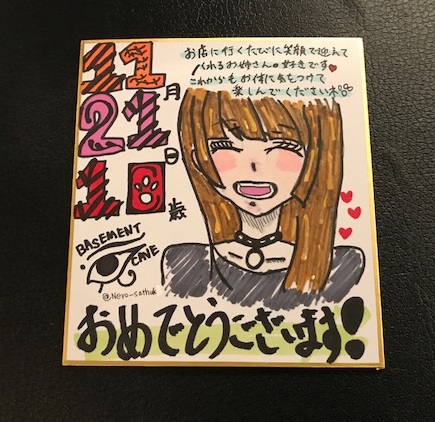 11月
21日
18歳
お店に行くたびに笑顔で迎えて
くれるお姉さん。好きです
これからもお体に気をつけて
楽しんでくださいネ
BASEMENT
CAVE
おめでとうございます!